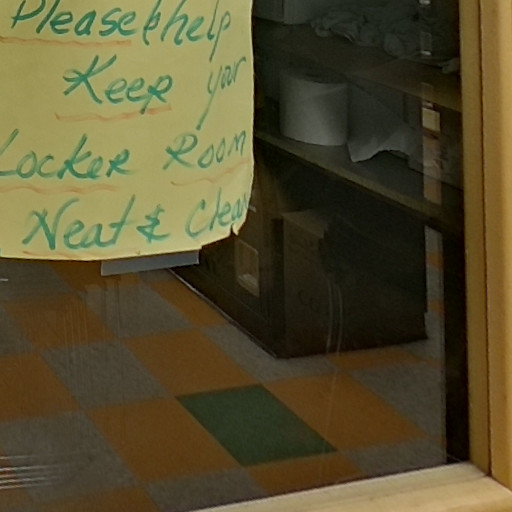 Please & help
Keep your
Locker Room
Neat & Clean